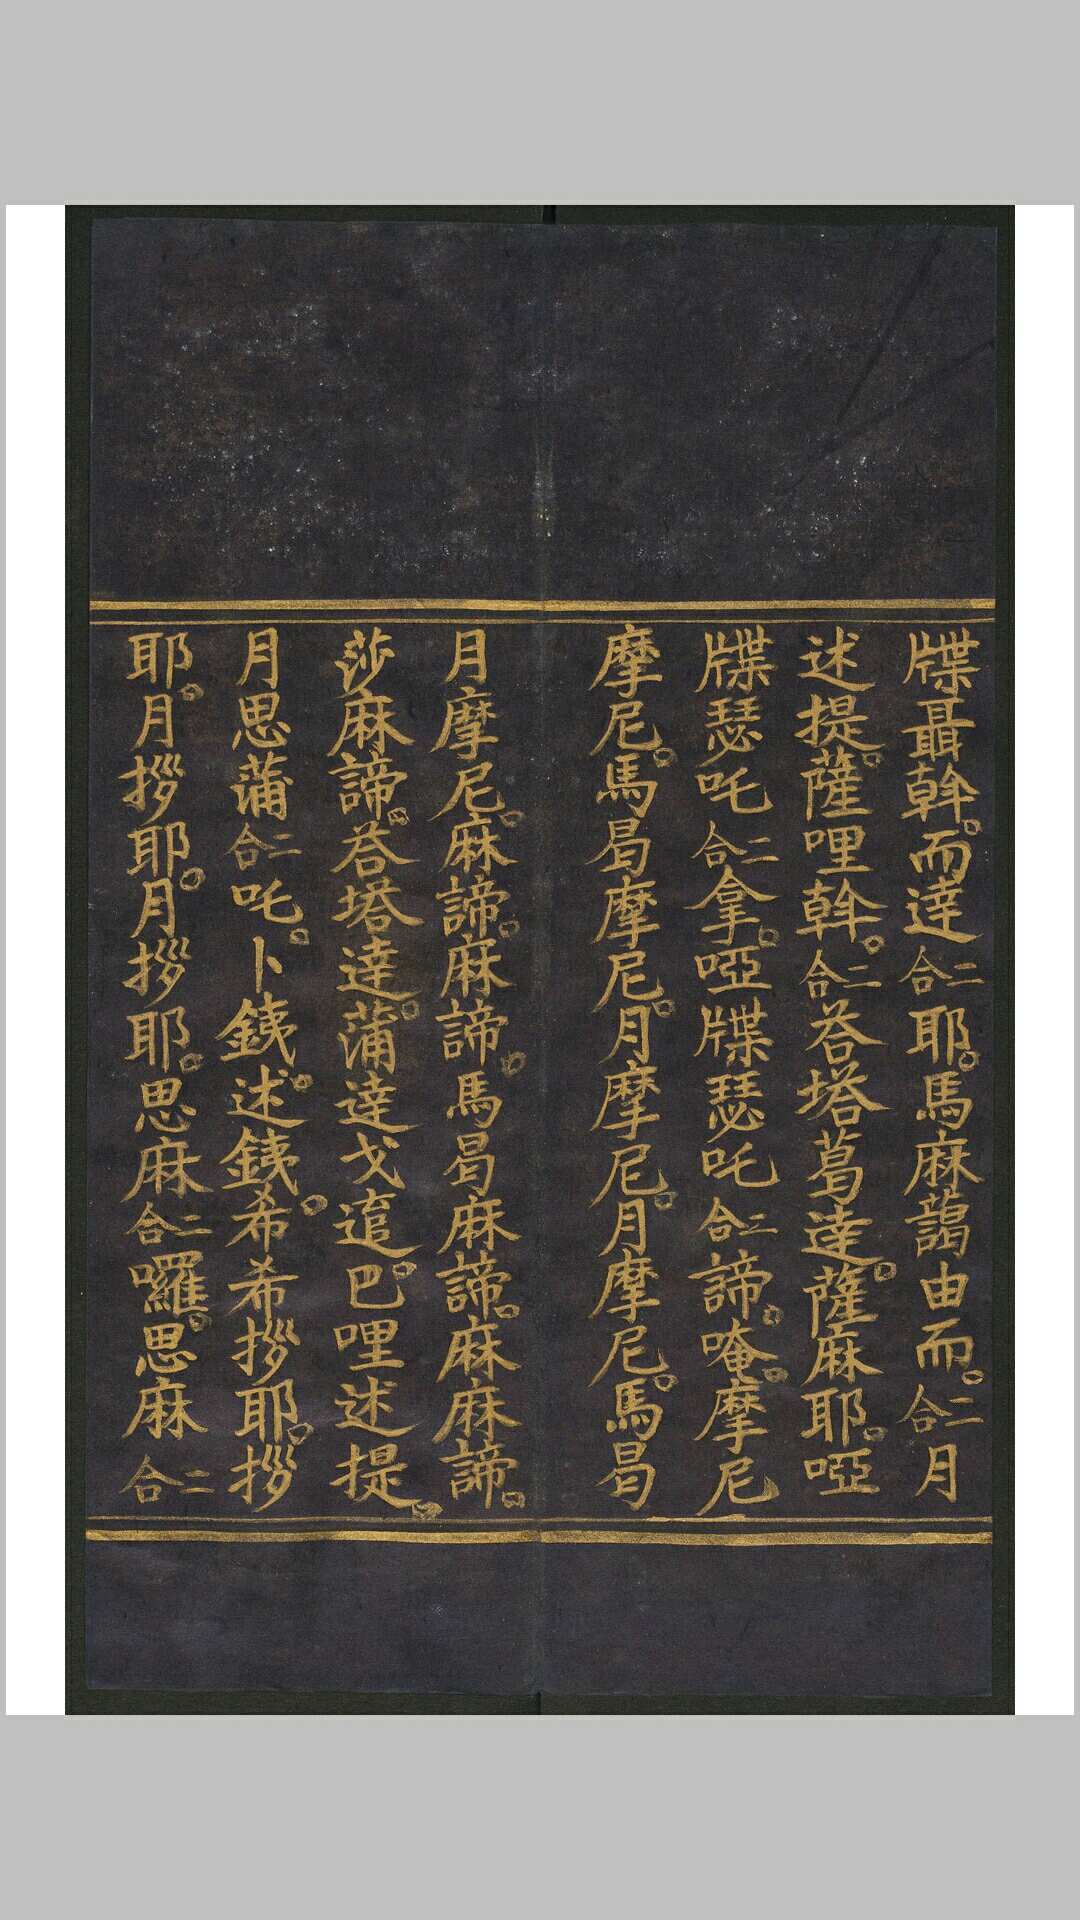 牒聶斡。而達二合耶。馬麻藹由而。二合月
述提。薩哩斡。二合荅塔葛達。薩麻耶。啞
牒瑟吒二合拿。啞牒瑟吒二合諦。唵。摩尼
摩尼。馬曷摩尼。月摩尼。月摩尼。馬曷
月摩尼。麻諦。麻諦。馬曷麻諦。麻麻諦。
莎麻諦。荅塔達。蒲達戈𨒬。巴哩述提。
月思蒲二合吒。卜銕。述銕。希希拶耶。拶
耶。月拶耶。月拶耶。思麻二合囉。思麻二合